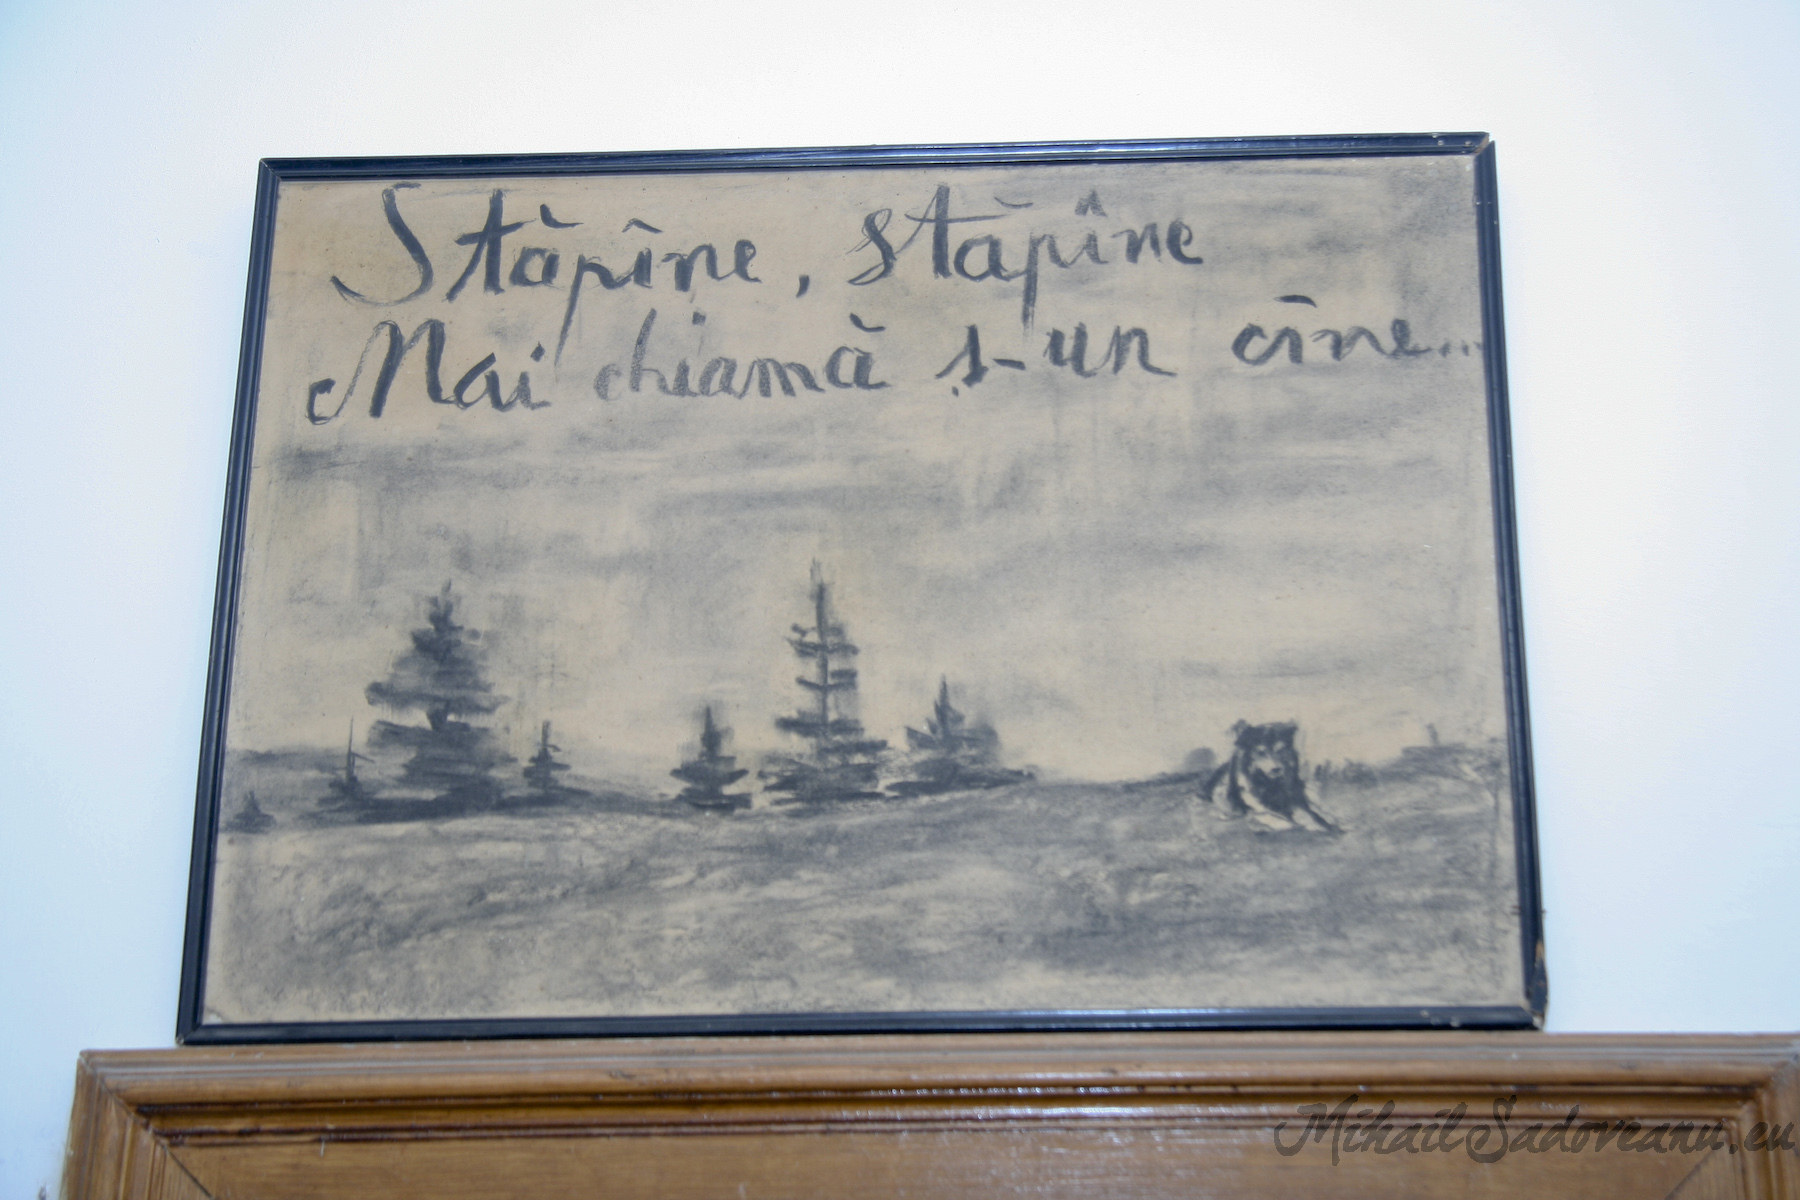 Stăpîne, stăpîne
Mai chiamă ș-un cîne...
MihailSadoveanu.eu